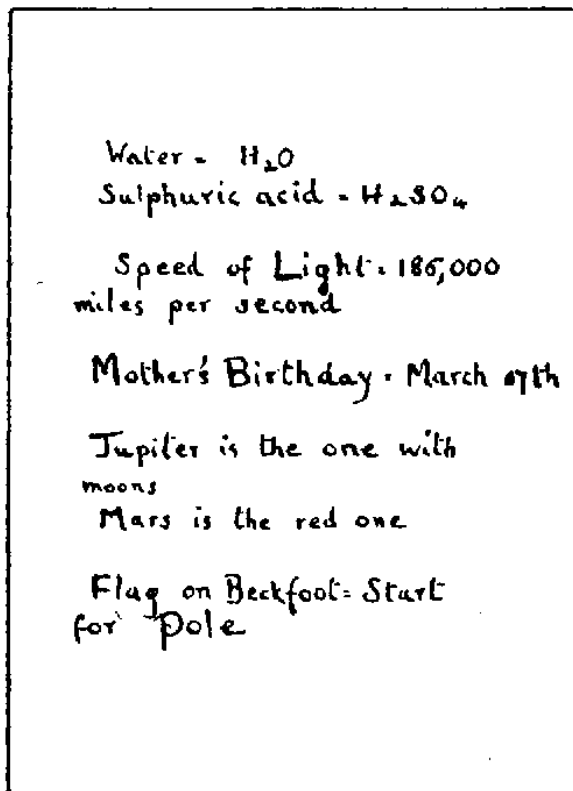 Water = H₂O
Sulphuric acid = H₂SO₄
Speed of Light = 186,000
miles per second
Mother's Birthday = March 17th
Jupiter is the one with
moons
Mars is the red one
Flag on Beckfoot = Start
for Pole